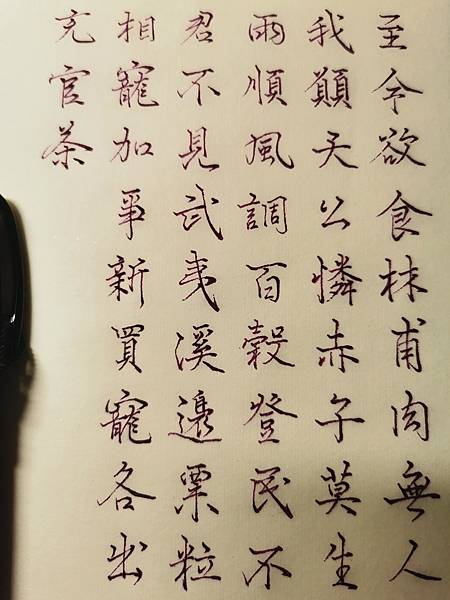 至今欲食林甫肉無人
我願天公憐赤子莫生
雨順風調百穀登民不
君不見武夷溪邊粟粒
相寵加爭新買寵各出
充官茶